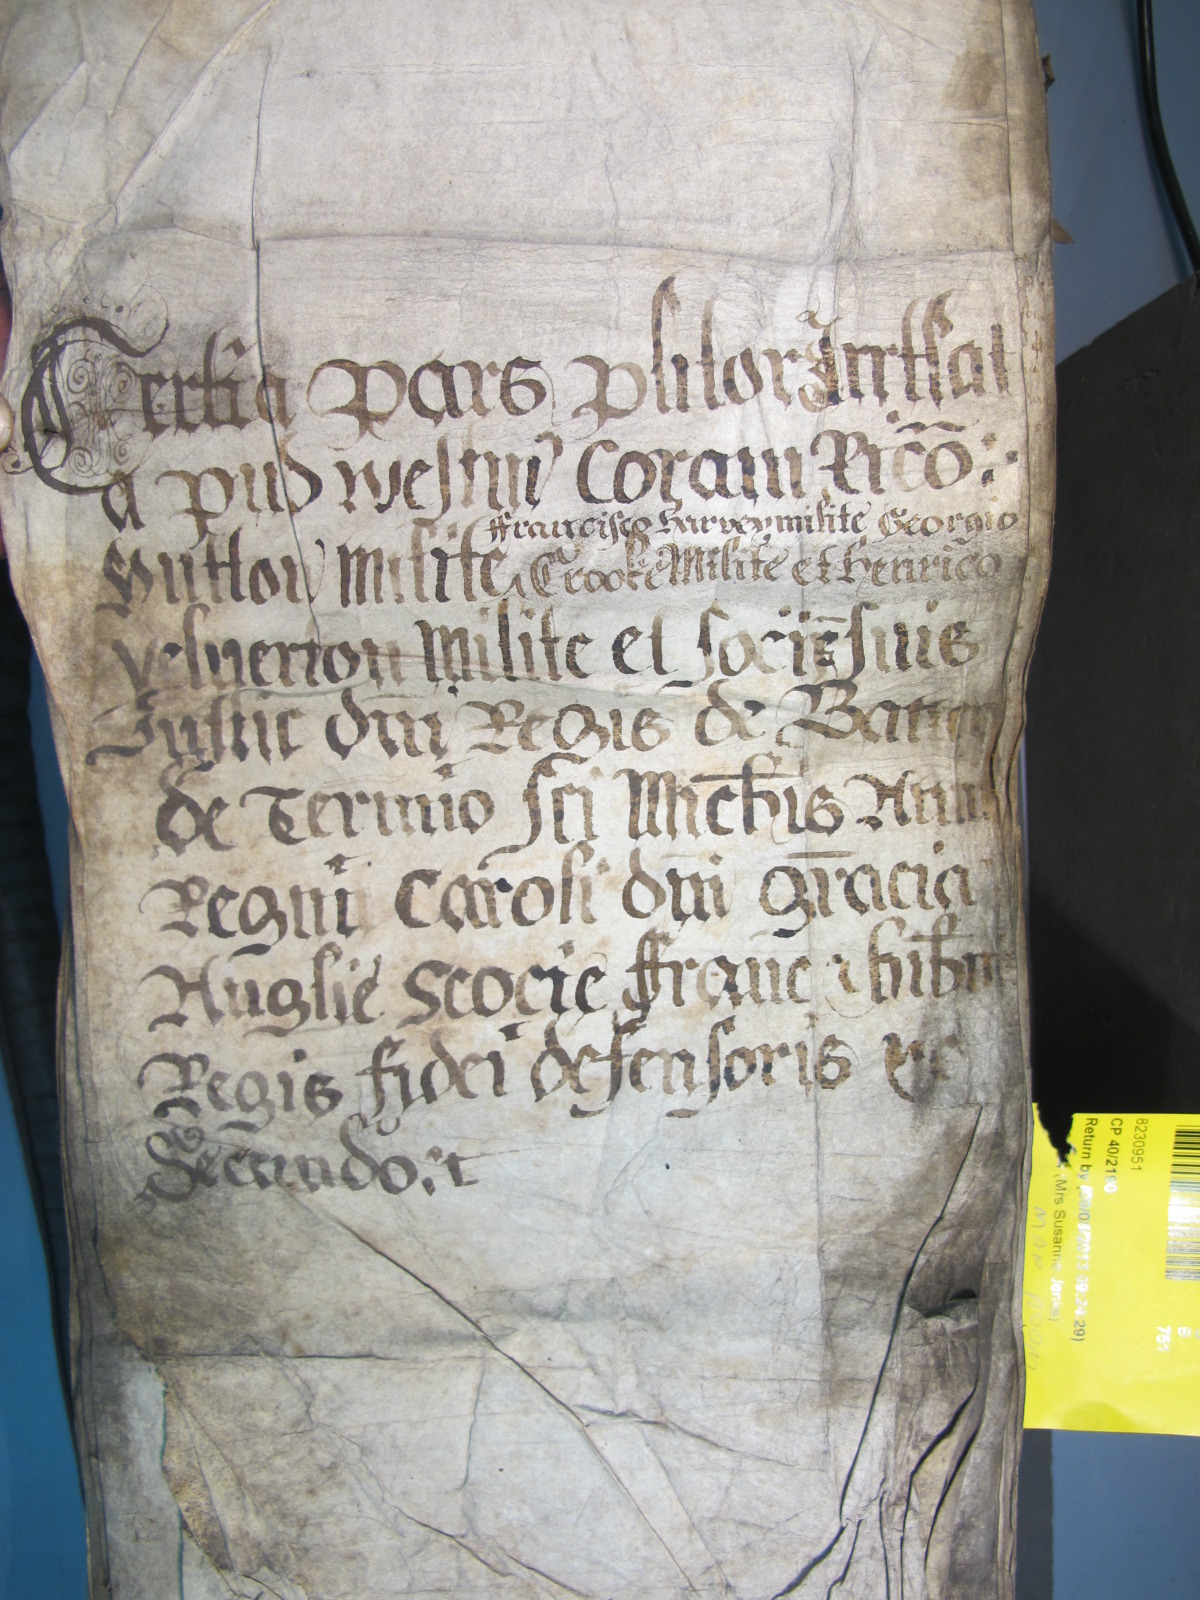 Tertia pars plitor Irrtlat
apud Westm Coram Rico:
Francisco Harvey milite Georgio
Hutton Milite Crooke Milite et Henrico
Yelverton Milite et socijs suis
Justic dni Regis de Banco
de Termio Sci Michis Anno
Regni Caroli dni gracia
Anglie Scocie Franc & hibn
Regis fidei defensoris &c
Secundo. :t
8230951
CP 40/2190
Return by
(Mrs Susanne Jenks)